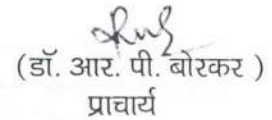 (डॉ. आर. पी. बोरकर )
प्राचार्य